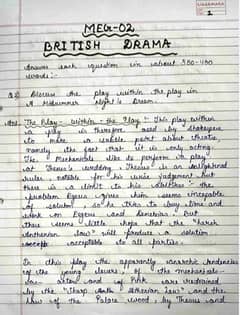 1
MEG-02
BRITISH DRAMA
Answer each question in about 350-400
words:-
Discuss the play within the play in
A Midsummer Night's Dream.
Ans) The Play - Within - the Play :- This play within
a play is therefore used by Shakespeare
to make a subtle point about theatre,
namely the fact that it is only acting.
The Mechanicals like to perform its play
at Theseus's wedding. Theseus is an enlightened
ruler, notable for his wise judgement but
there is a limit to his abilities :- the
problem Egeus gives him seems incapable
of solution, so he tries to buy time and
work on Egeus and Demetrius, but
there seems little hope that the "harsh
Anthenian law" will produce a solution
acceptable to all parties.
In this play the apparently anarchic tendencies
of the young lovers, of the mechanicals-
as- actors and of Puck are restrained
by the "sharp Anthenian law" and the
law of the Palace wood, by Theseus and